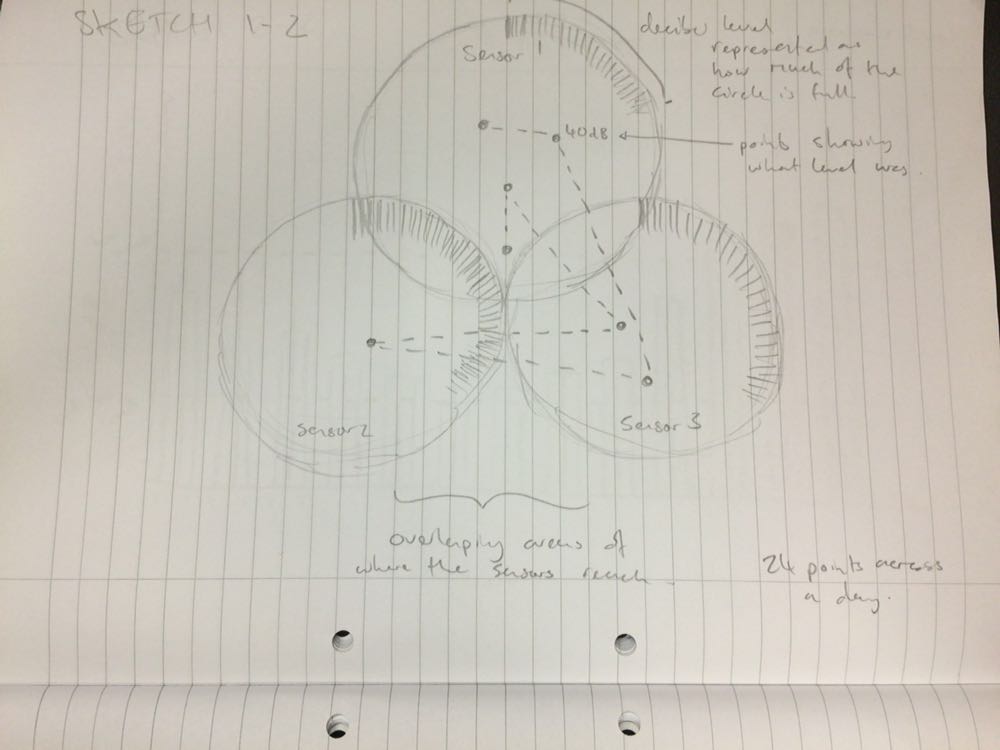 SKETCH 1-2
Sensor 1
decibel level
represented as
how much of the
circle is full.
40dB
points showing
what level was.
Sensor 2
Sensor 3
overlaping areas of
where the sensors reach.
24 points across
a day.